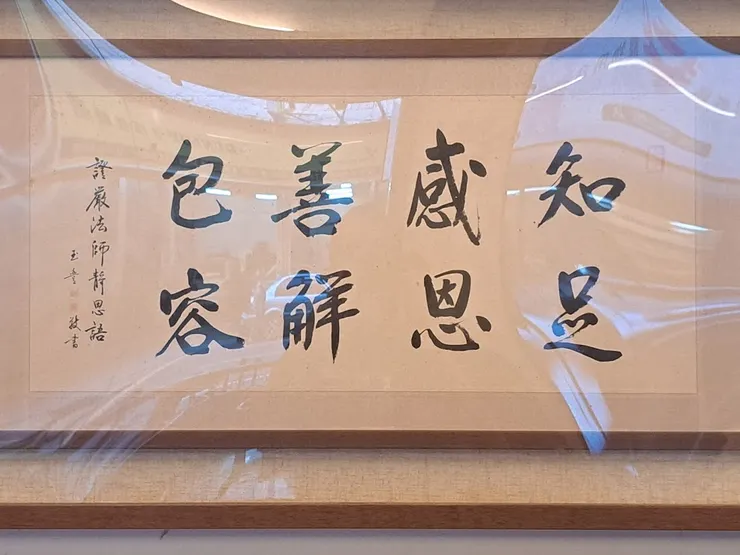 知足
感恩
善解
包容
證嚴法師靜思語
敬書